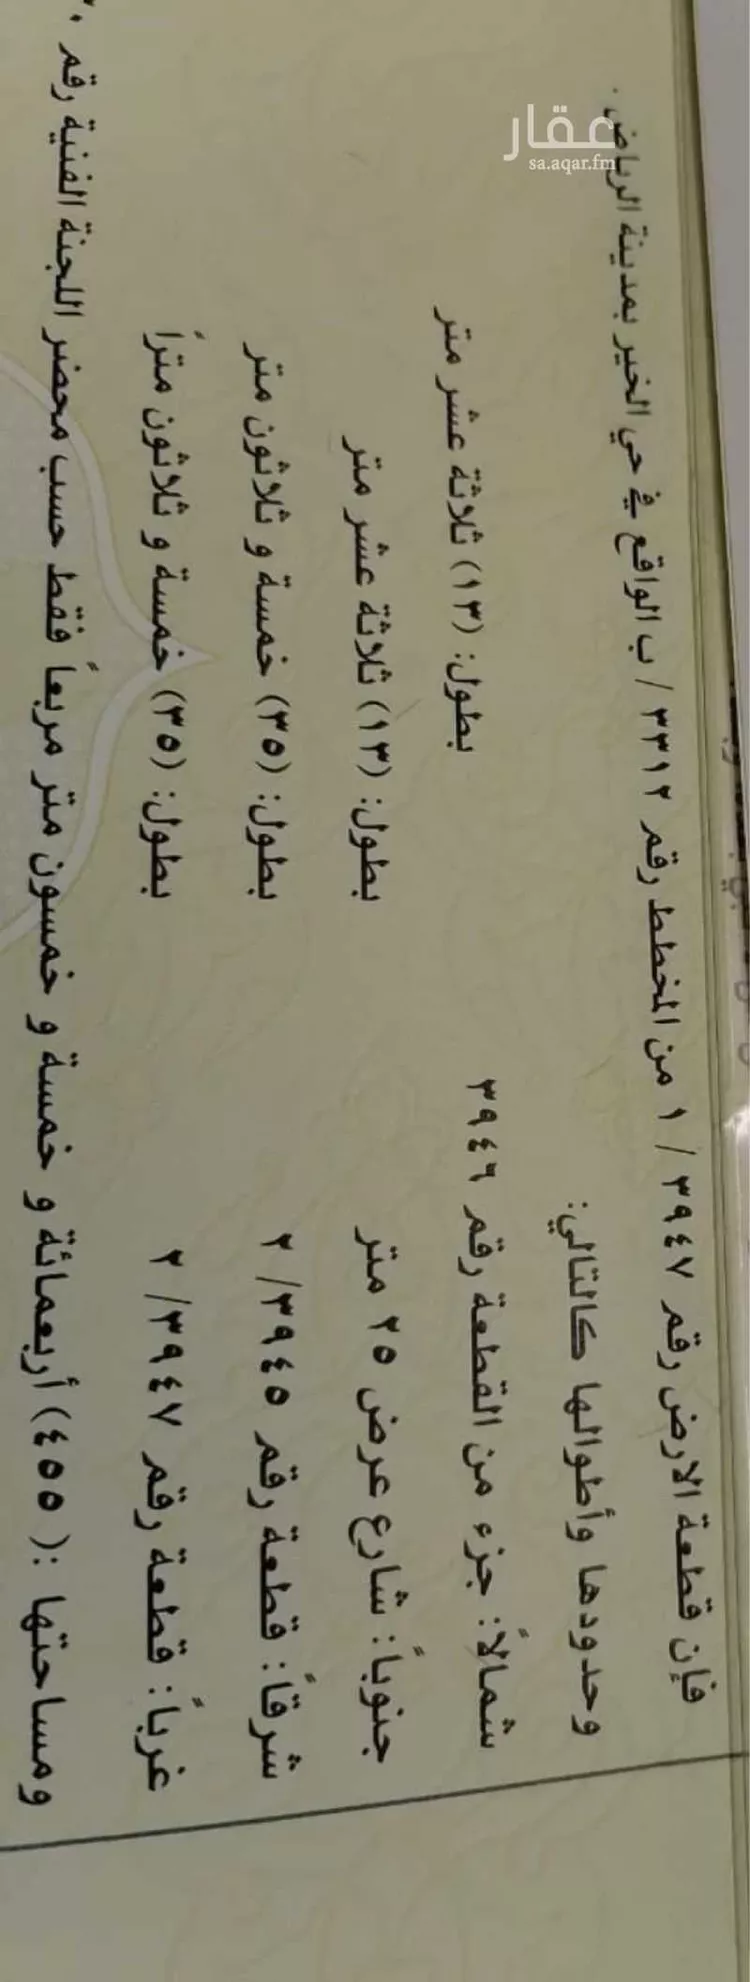 عقار
sa.aqar.fm
فإن قطعة الارض رقم ٣٩٤٧ / ١ من المخطط رقم ٣٣١٢ / ب الواقع في حي الخير بمدينة الرياض .
وحدودها وأطوالها كالتالي:
شمالاً: جزء من القطعة رقم ٣٩٤٦ بطول: (١٣) ثلاثة عشر متر
جنوباً: شارع عرض ٢٥ متر بطول: (١٣) ثلاثة عشر متر
شرقاً: قطعة رقم ٣٩٤٥/ ٢ بطول: (٣٥) خمسة و ثلاثون متر
غرباً: قطعة رقم ٣٩٤٧/ ٢ بطول: (٣٥) خمسة و ثلاثون متراً
ومساحتها :( ٤٥٥) أربعمائة و خمسة و خمسون متر مربعاً فقط حسب محضر اللجنة الفنية رقم